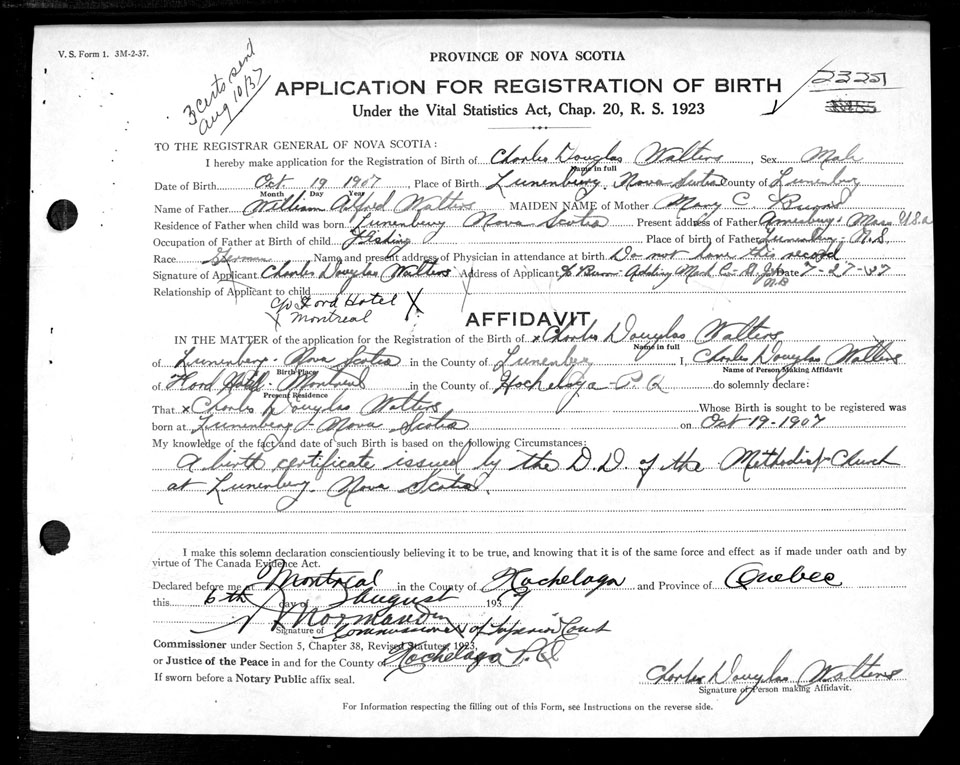 V. S. Form 1. 3M-2-37.
3 certs sent
Aug 10/37
PROVINCE OF NOVA SCOTIA
APPLICATION FOR REGISTRATION OF BIRTH
Under the Vital Statistics Act, Chap. 20, R. S. 1923
TO THE REGISTRAR GENERAL OF NOVA SCOTIA:
I hereby make application for the Registration of Birth of Charles Douglas Walters, Sex Male
Name in full
Date of Birth Oct. 19 1907, Place of Birth Lunenburg, Nova Scotia County of Lunenburg
Month Day Year
Name of Father William Alfred Walters MAIDEN NAME of Mother Mary C.
Residence of Father when child was born Lunenburg Nova Scotia Present address of Father Amesbury: Mass U.S.A
Occupation of Father at Birth of child Fishing Place of Birth of Father Lunenburg - N.S.
Race German Name and present address of Physician in attendance at birth Do not have this record
Signature of Applicant Charles Douglas Walters Address of Applicant Date 7-27-37
Relationship of Applicant to child
c/o Ford Hotel X
X Montreal
AFFIDAVIT
IN THE MATTER of the application for Registration of the Birth of x Charles Douglas Walters
Name in full
of Lunenburg - Nova Scotia in the County of Lunenburg I, Charles Douglas Walters
Birth Place Name of Person Making Affidavit
of Ford Hotel - Montreal in the County of Hochelaga - P. Q do solemnly declare:
Present Residence
That x Charles Douglas Walters Whose Birth is sought to be registered was
born at Lunenburg - Nova Scotia on Oct 19-1907
My knowledge of the fact and date of such Birth is based on the following Circumstances:
A birth certificate issued by the D.D. of the Methodist Church
at Lunenburg. Nova Scotia.
I make this solemn declaration conscientiously believing it to be true, and knowing that it is of the same force and effect as if made under oath and by
virtue of The Canada Evidence Act.
Declared before me Montreal in the County of Hochelaga and Province of Quebec
this 6th day of August 193
Normandin
Signature of Commissioner of Superior Court
Commissioner under Section 5, Chapter 38, Revised Statutes, 1923,
or Justice of the Peace in and for the County of Hochelaga P.Q
If sworn before a Notary Public affix seal.
Charles Douglas Walters
Signature of Person making Affidavit.
For Information respecting the filling out of this Form, see Instructions on the reverse side.